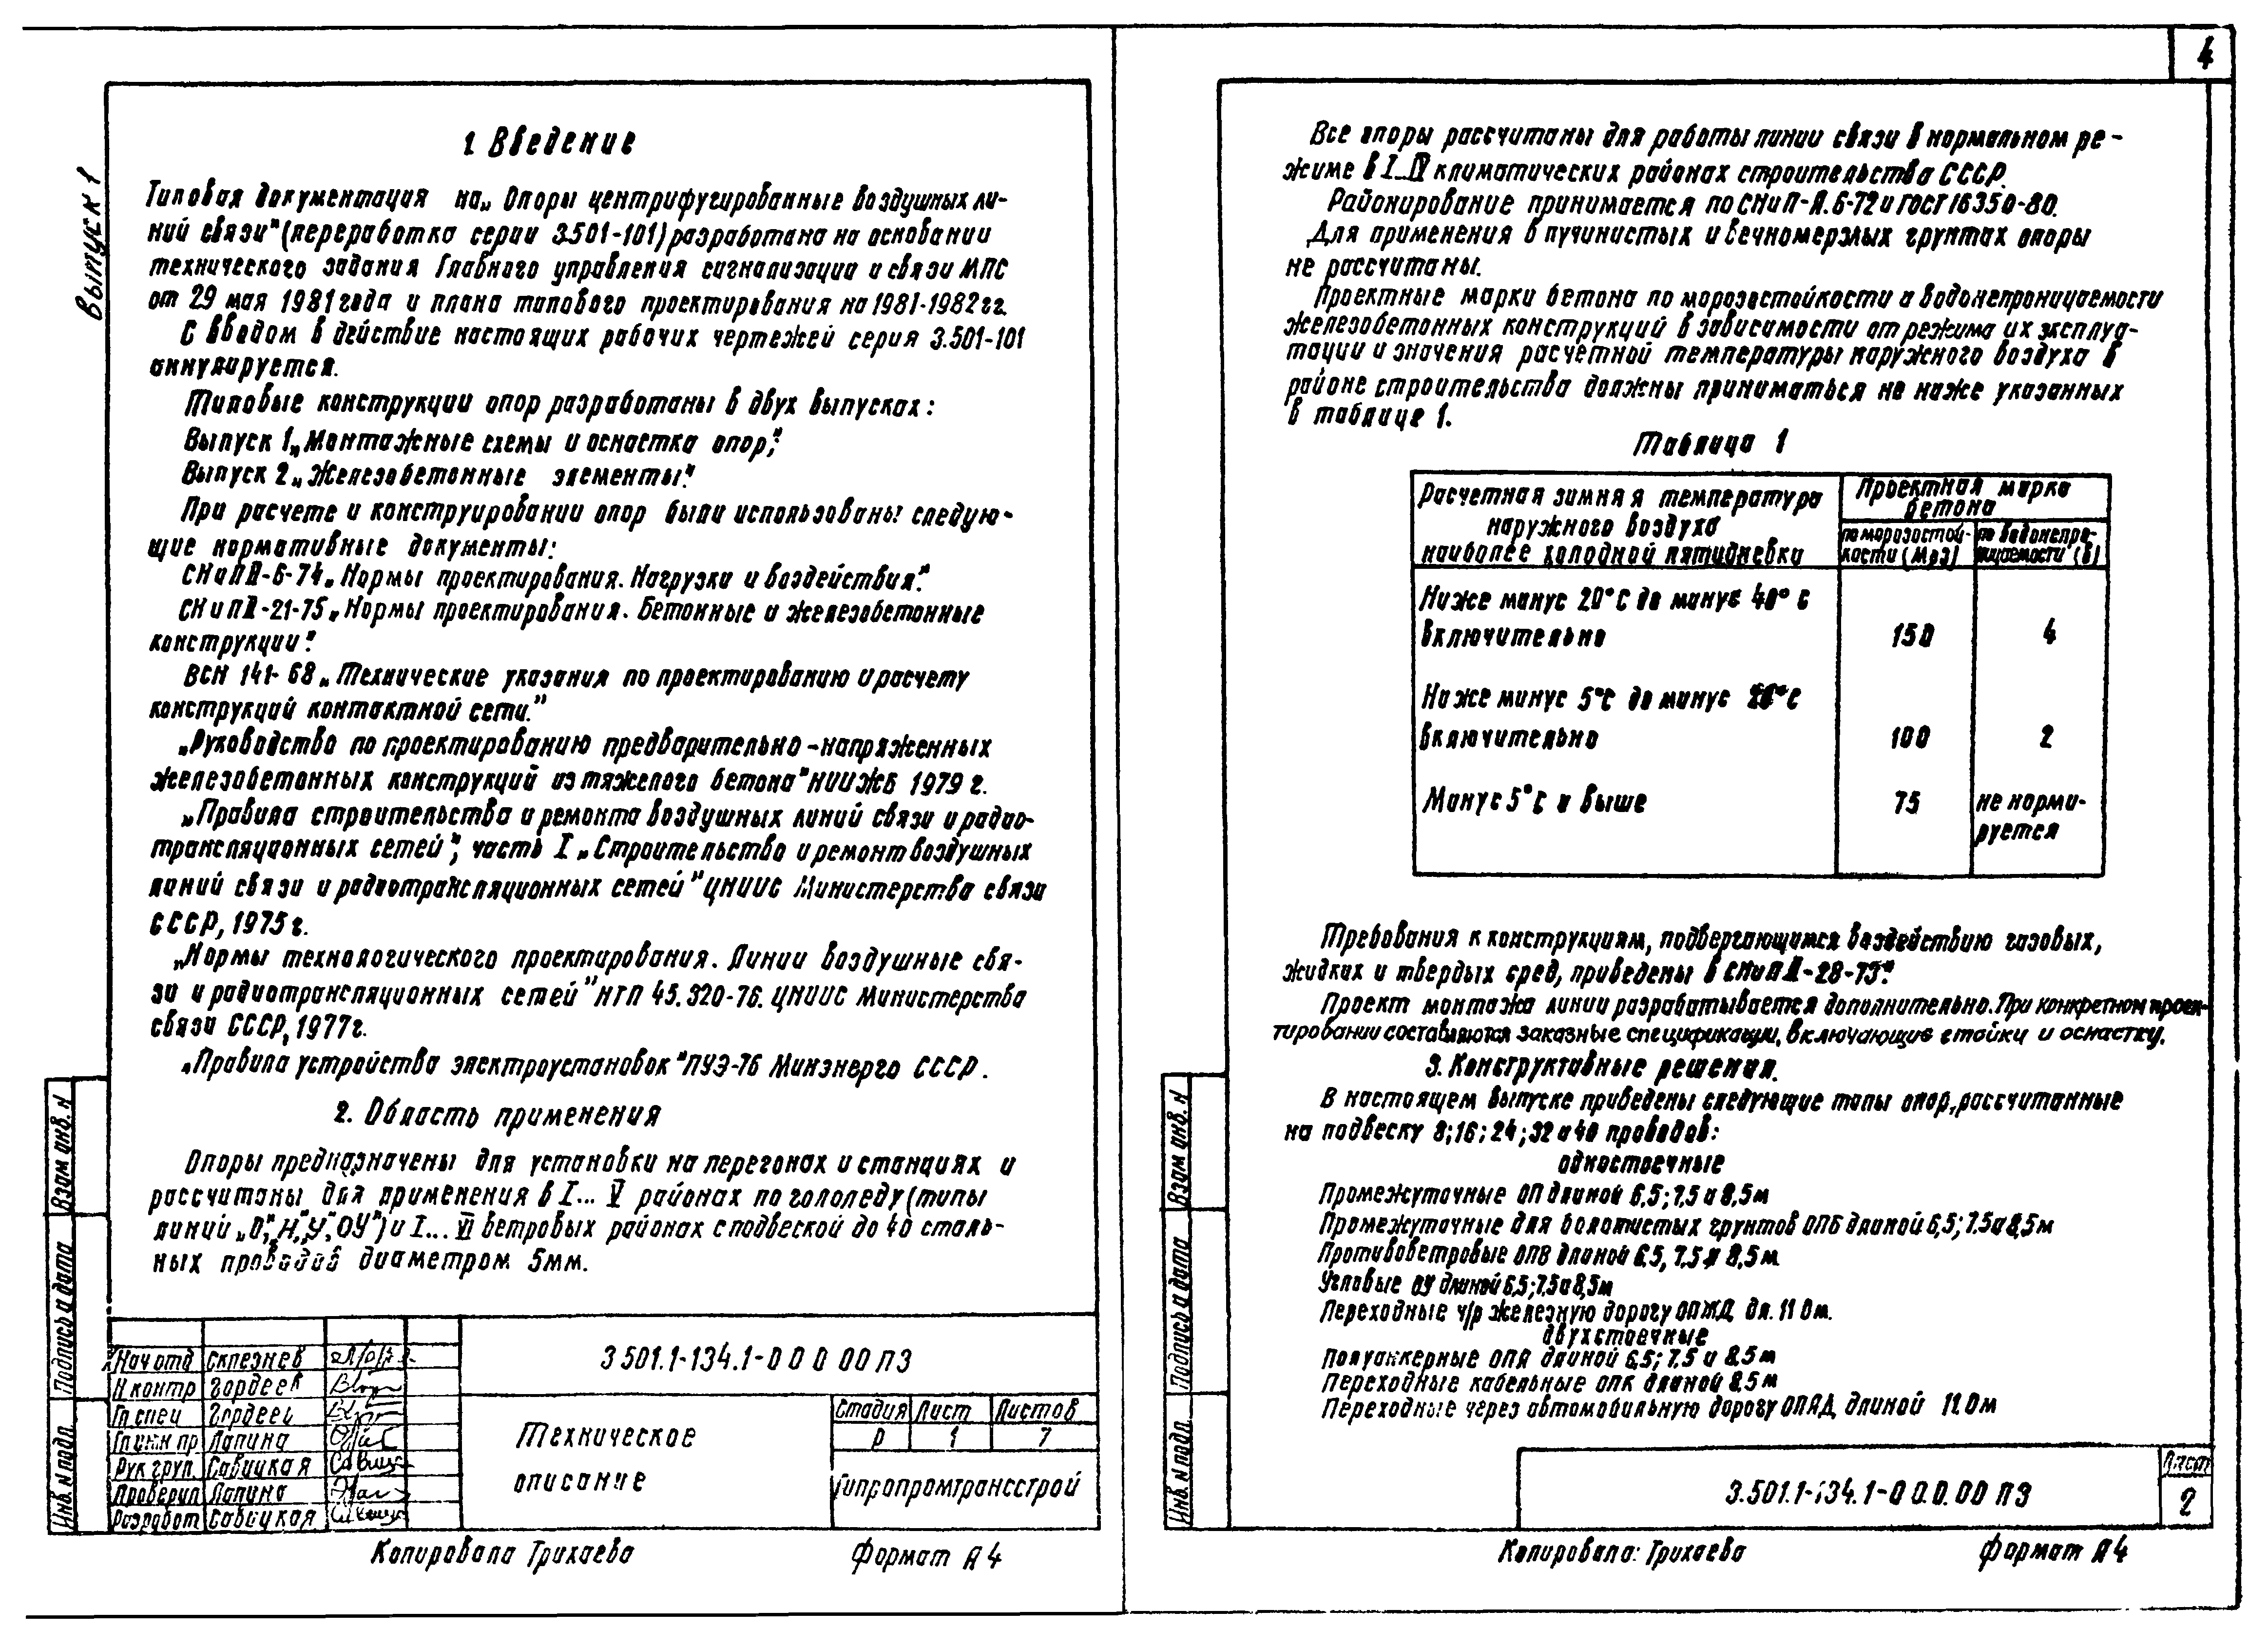 Выпуск 1
1. Введение
Типовая документация на „Опоры центрифугированные воздушных ли-
ний связи" (переработка серии 3.501-101) разработана на основании
технического задания Главного управления сигнализации и связи МПС
от 29 мая 1981 года и плана типового проектирования на 1981-1982 гг.
С вводом в действие настоящих рабочих чертежей серия 3.501-101
аннулируется.
Типовые конструкции опор разработаны в двух выпусках:
Выпуск 1 „Монтажные схемы и оснастка опор",
Выпуск 2 „Железобетонные элементы".
При расчете и конструировании опор были использованы следую-
щие нормативные документы:
СНиП II-6-74 „Нормы проектирования. Нагрузки и воздействия."
СНиП II-21-75 „Нормы проектирования. Бетонные и железобетонные
конструкции".
ВСН 141-68 „Технические указания по проектированию и расчету
конструкций контактной сети."
„Руководство по проектированию предварительно-напряженных
железобетонных конструкций из тяжелого бетона" НИИЖБ 1979 г.
„Правила строительства и ремонта воздушных линий связи и радио-
трансляционных сетей", часть I „Строительство и ремонт воздушных
линий связи и радиотрансляционных сетей" ЦНИИС Министерства связи
СССР, 1975 г.
„Нормы технологического проектирования. Линии воздушные свя-
зи и радиотрансляционных сетей" НТП 45.320-76. ЦНИИС Министерства
связи СССР, 1977г.
„Правила устройства электроустановок" ПУЭ-76 Минэнерго СССР.
2. Область применения
Опоры предназначены для установки на перегонах и станциях и
рассчитаны для применения в I... V районах по гололеду (типы
линий „О", „Н", „У", „ОУ") и I... VI ветровых районах с подвеской до 40 сталь-
ных проводов диаметром 5мм.
Взам инв. N
Подпись и дата
Инв. N подл.
Нач отд Склезнев
Н контр Гордеев
Гл спец Гордеев
Гл инж пр Лапина
Рук груп. Савицкая
Проверил Лапина
Разработ Савицкая
3 501.1-134.1-0 0 0 00 ПЗ
Техническое
описание
Стадия Лист Листов
Р 1 7
Гипропромтрансстрой
Копировала Трихаева Формат А4
4
Все опоры рассчитаны для работы линии связи в нормальном ре-
жиме в I...IV климатических районах строительства СССР.
Районирование принимается по СНиП-А.6-72 и ГОСТ 16350-80.
Для применения в пучинистых и вечномерзлых грунтах опоры
не рассчитаны.
Проектные марки бетона по морозостойкости и водонепроницаемости
железобетонных конструкций в зависимости от режима их эксплуа-
тации и значения расчетной температуры наружного воздуха в
районе строительства должны приниматься не ниже указанных
в таблице 1.
Таблица 1
Расчетная зимняя температура
наружного воздуха
наиболее холодной пятидневки
Проектная марка
бетона
по морозостой-
кости (Мрз)
по водонепро-
ницаемости (В)
Ниже минус 20°С до минус 40°С
включительно 150 4
Ниже минус 5°С до минус 20°С
включительно 100 2
Минус 5°С и выше 75 не норми-
руется
Требования к конструкциям, подвергающимся воздействию газовых,
жидких и твердых сред, приведены в СНиП II-28-73*.
Проект монтажа линии разрабатывается дополнительно. При конкретном проек-
тировании составляются заказные спецификации, включающие стойки и оснастку.
3. Конструктивные решения.
В настоящем выпуске приведены следующие типы опор, рассчитанные
на подвеску 8; 16; 24; 32 и 40 проводов:
одностоечные
Промежуточные ОП длиной 6,5; 7,5 и 8,5м
Промежуточные для болотистых грунтов ОПБ длиной 6,5; 7,5 и 8,5м
Противоветровые ОПВ длиной 6.5, 7,5 и 8,5м.
Угловые ОУ длиной 6,5; 7,5 и 8,5м
Переходные ч/р железную дорогу ОПЖД дл. 11 0м.
двухстоечные
Полуанкерные ОПА длиной 6.5; 7.5 и 8.5м
Переходные кабельные ОПК длиной 8,5м
Переходные через автомобильную дорогу ОПАД длиной 11.0м
Взам инв. N
Подпись и дата
Инв. N подл
3.501.1-134.1-0 0.0.00 ПЗ
Лист
2
Копировала: Трихаева Формат А4